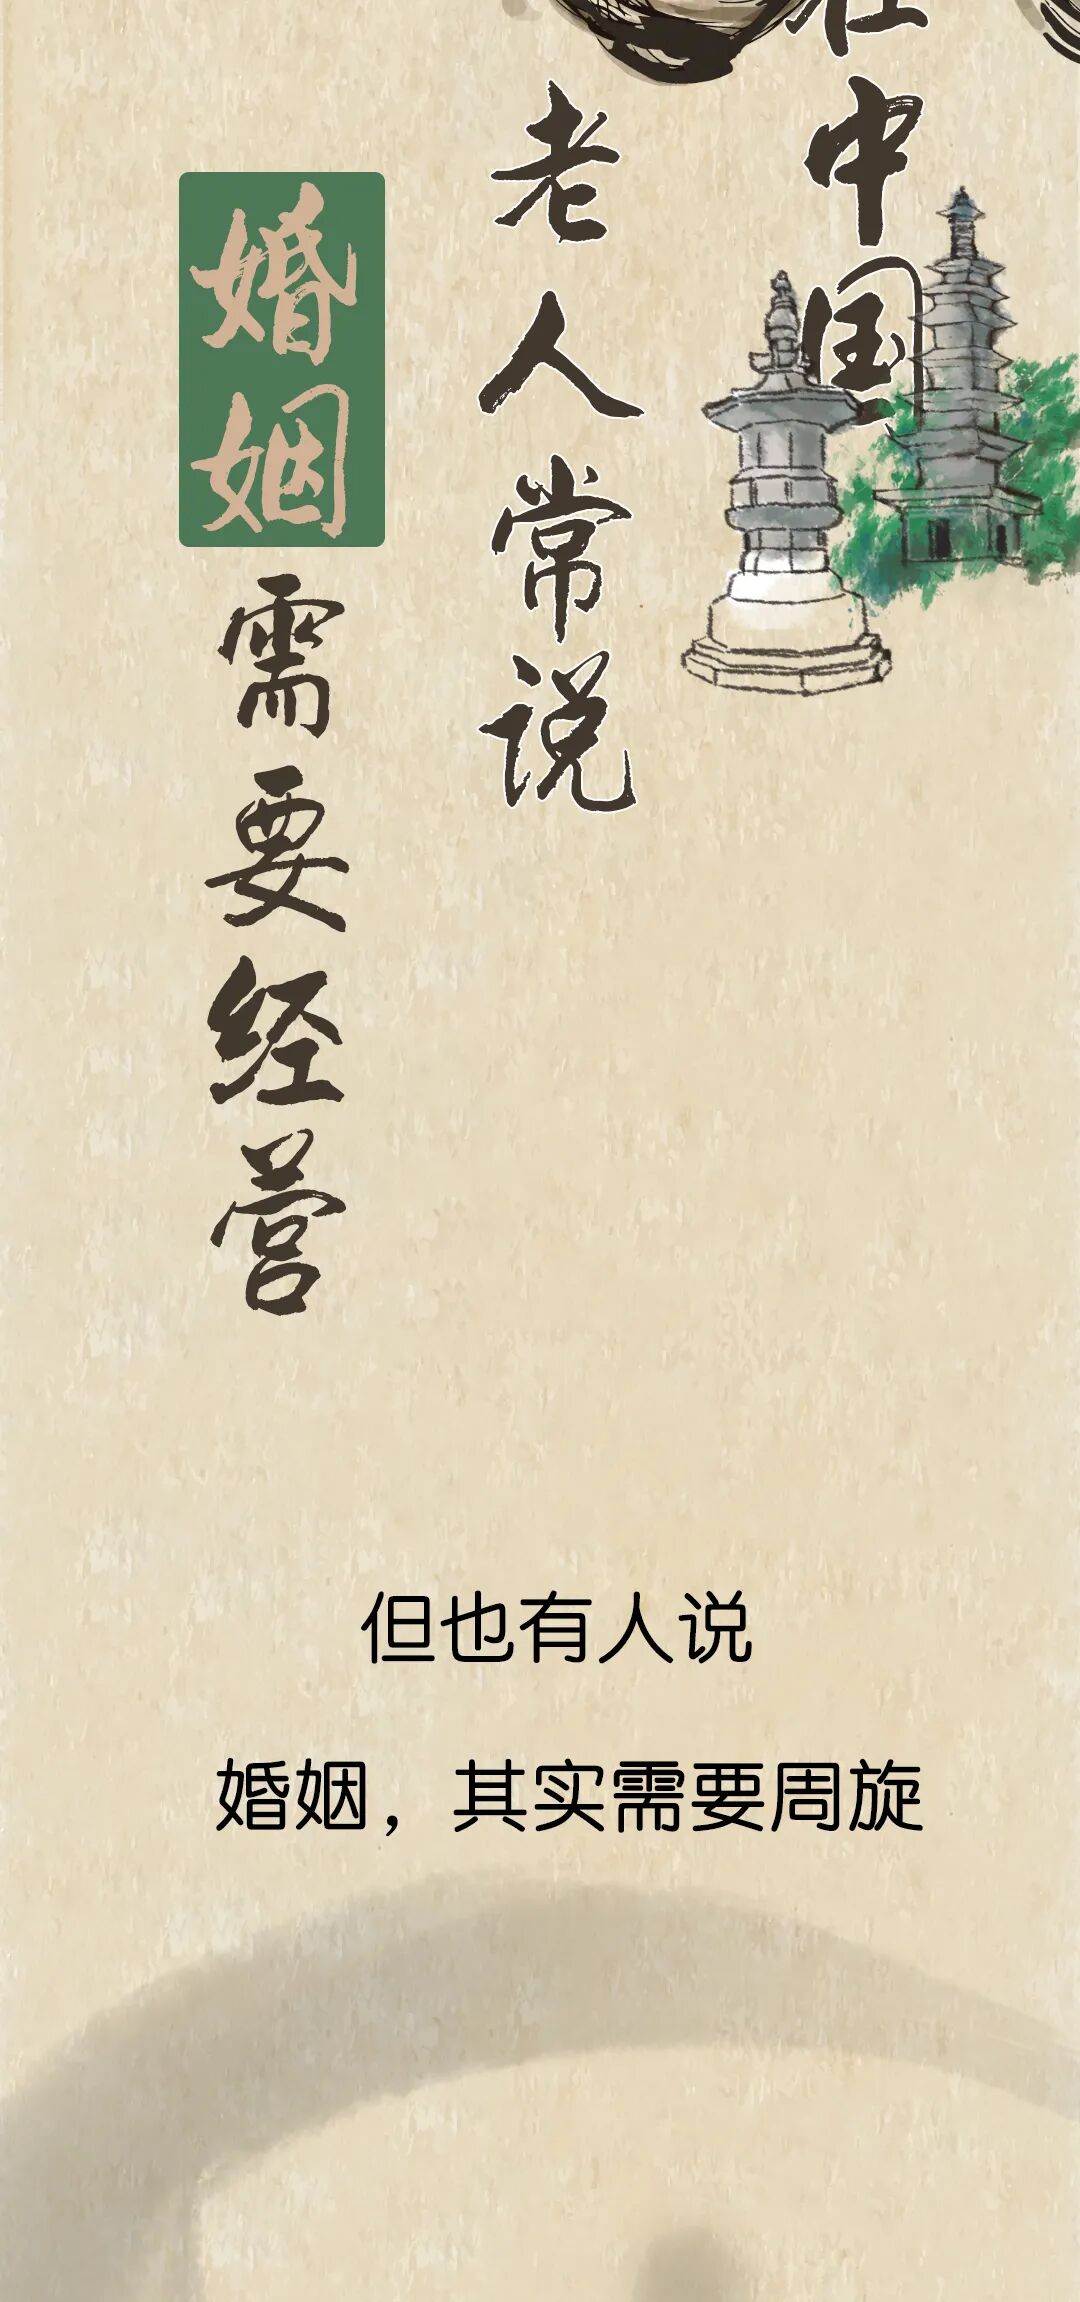 在中国
老人常说
婚姻需要经营
但也有人说
婚姻，其实需要周旋